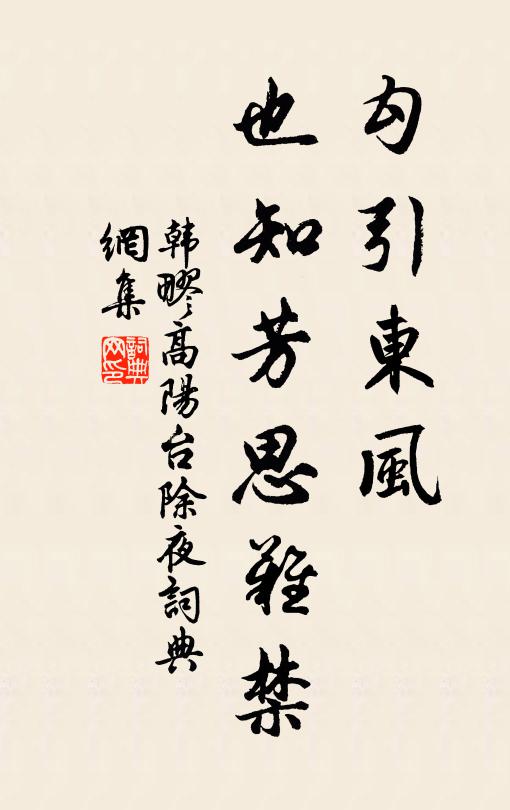 勾引東風
也知芳思難禁
韩疁高陽台除夜詞典
網集
詞典
网印